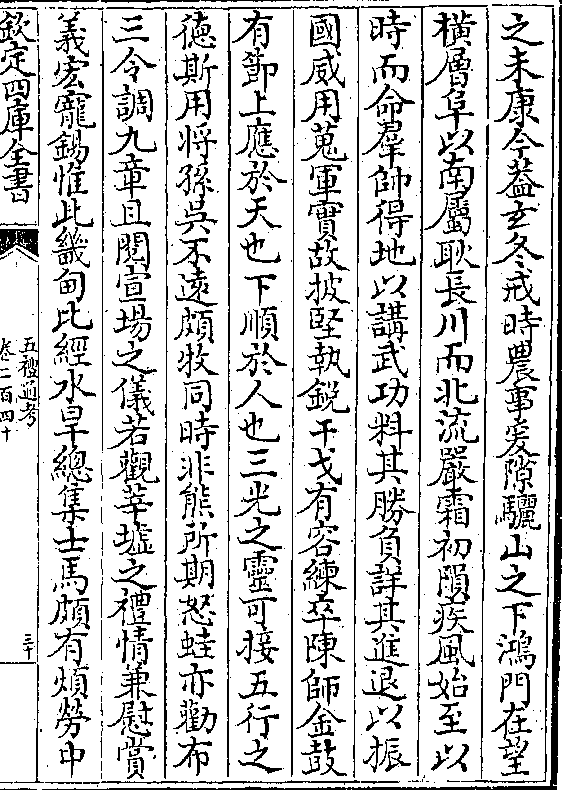 之未康今葢玄冬戒時農事爰隙驪山之下鴻門在望
橫層阜以南屬耿長川而北流嚴霜初隕疾風始至以
時而命羣帥得地以講武功料其勝負詳其進退以振
國威用蒐軍實故披堅執銳干戈有容練卒陳師金鼓
有節上應於天也下順於人也三光之靈可接五行之
徳斯用将孫吳不逺頗牧同時非熊所期怒蛙亦勸布
三令調九章且閱宣場之儀若觀莘墟之禮情兼慰賞
義宏寵錫惟此畿甸比經水旱總集士馬頗有煩勞中
欽定四庫全書
五禮通考
卷二百四十
三十